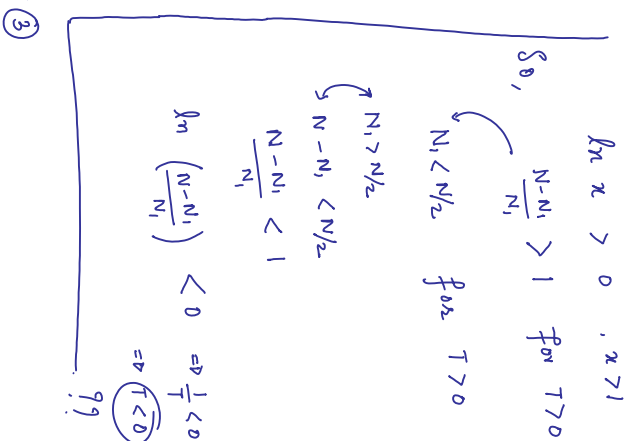 ln x > 0 , x > 1
So,
N-N₁/N₁ > 1 for T > 0
N₁ < N/2 for T > 0
N₁ > N/2
N - N₁ < N/2
N - N₁/N₁ < 1
ln (N-N₁/N₁) < 0 ⇒ 1/T < 0
⇒ T < 0
??
③